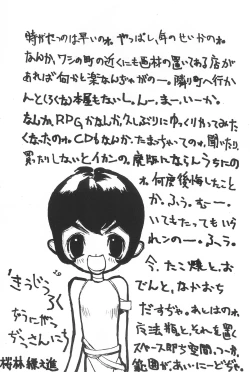 時がたつのは早いのオ。やっぱし、年のせいかのオ。
なんか、ワシの町の近くにも画材の置いてある店が
あれば何かと楽なんぢゃがのー。隣り町へ行か
んとろくな本屋もないしんー。まー、いーか。
なんか、RPGかなんか、久しぶりにゆっくりやってみた
くなったのオ。CDもなんか、たまっちゃいてのオ。聞いたり、
買ったりしないとイカンの。廃版にならんうちにの
オ。何度後悔したこと
か。ふう。むー。
いてもたってもいら
れンのー。ふう。
今、たこ焼と、お
でんと、なかおち
だすぢゃ。あしはのオ、
灰法瓶と、それを置く
スペース即ち空間、つーか、
範囲が、あいにーどぢゃ。
きっぢょ
ろく
なうにがう
ぢっさんにち
桜林緑之進